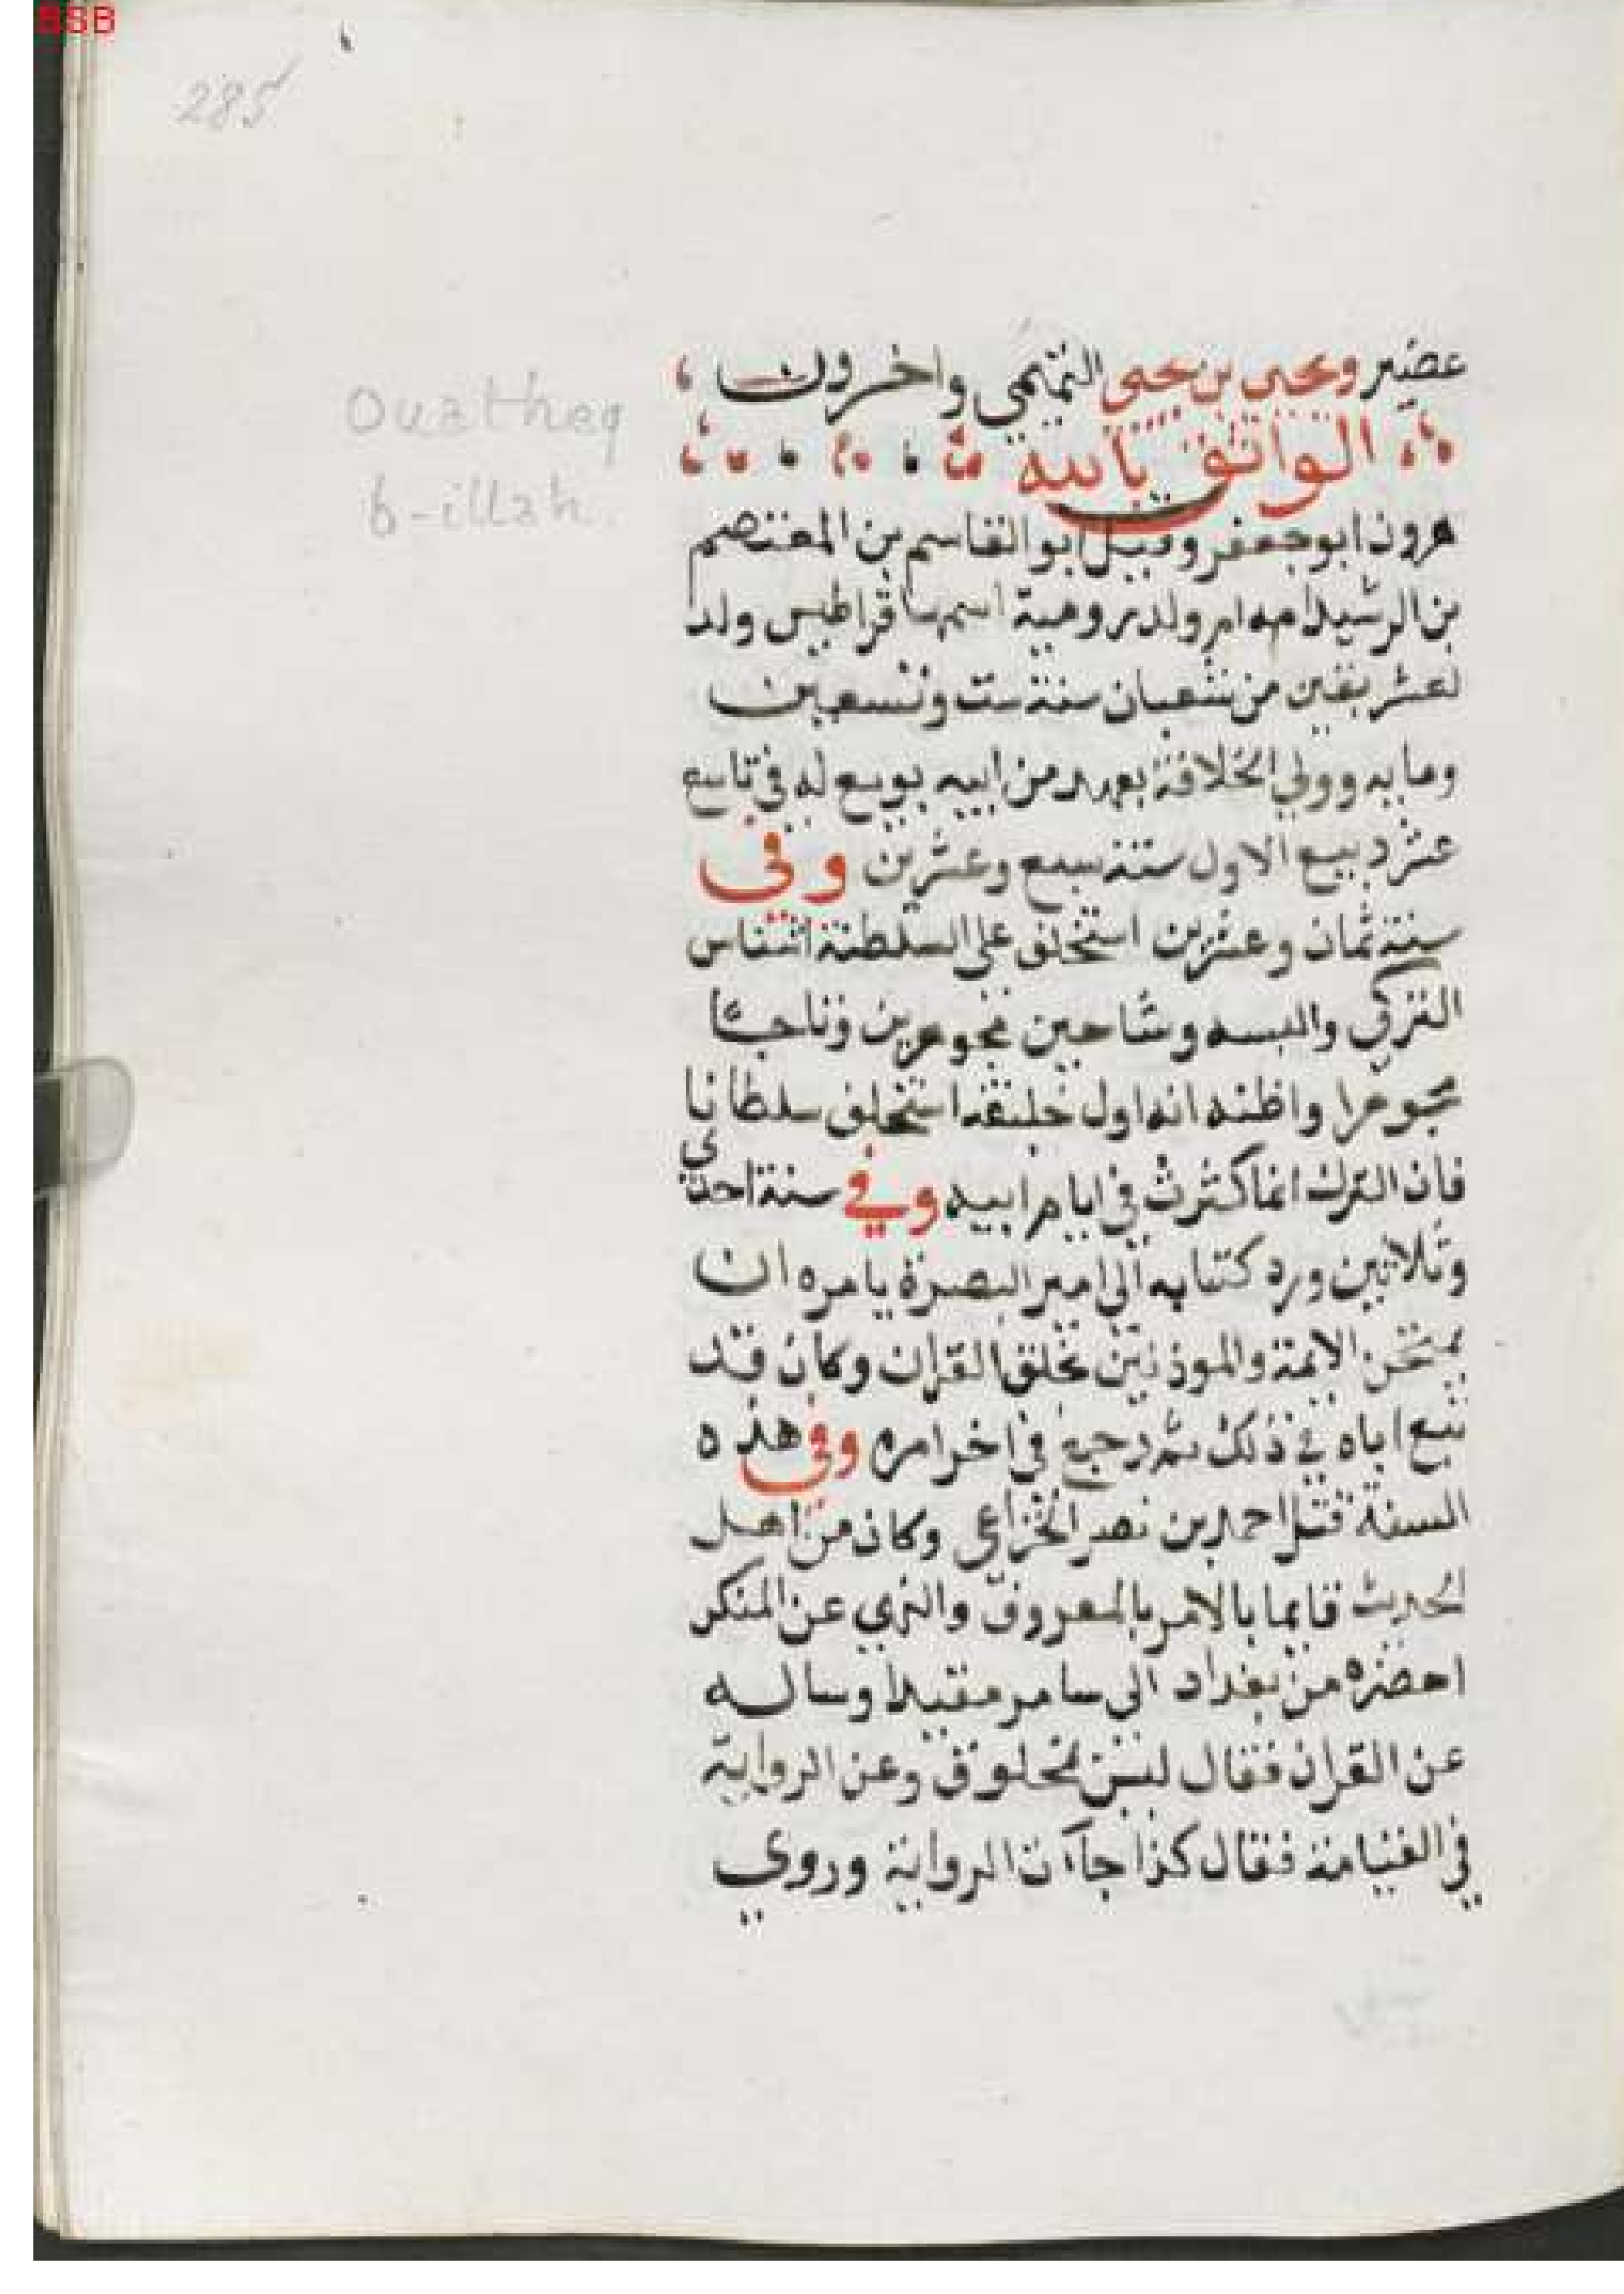 BSB
285
Ouatheq
b-illah.
عضير ويحيى بن يحيى التميمي واخرون
الواثق بالله
هرون ابو جعفر وقيل ابو القاسم بن المعتصم
بن الرشيد امه ام ولد رومية اسمها قراطيس ولد
لعشر بقين من شعبان سنة ست وتسعين
ومايه وولي الخلافة بعهد من ابيه بويع له في تاسع
عشر ربيع الاول سنة سبع وعشرين وفى
سنة ثمان وعشرين استخلف على السلطنة اشناس
التركي والبسه وشاحين مجوهرين وتاجا
مجوهرا واظنه انه اول خليفة استخلف سلطانا
فان الترك انما كثرت في ايام ابيه وفي سنة احدى
وثلاثين ورد كتابه الى امير البصرة يامره ان
يمتحن الايمة والموذنين بخلق القران وكان قد
تبع اباه في ذلك ثم رجع في اخر امره وفي هذه
السنة قتل احمد بن نصر الخزاعي وكان من اهل
الحديث قايما بالامر بالمعروف والنهي عن المنكر
احضره من بغداد الى سامر مقيدا وساله
عن القران فقال ليس بمخلوق وعن الرواية
في القيامة فقال كذا جاآت الرواية وروي